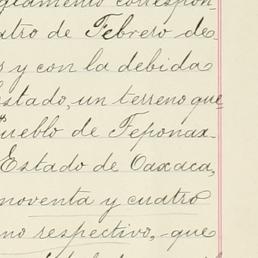 glamento correspon-
atro de Febrero de
s y con la debida
estado, un terreno que
ueblo de Teponax-
Estado de Oaxaca,
noventa y cuatro
no respectivo, que